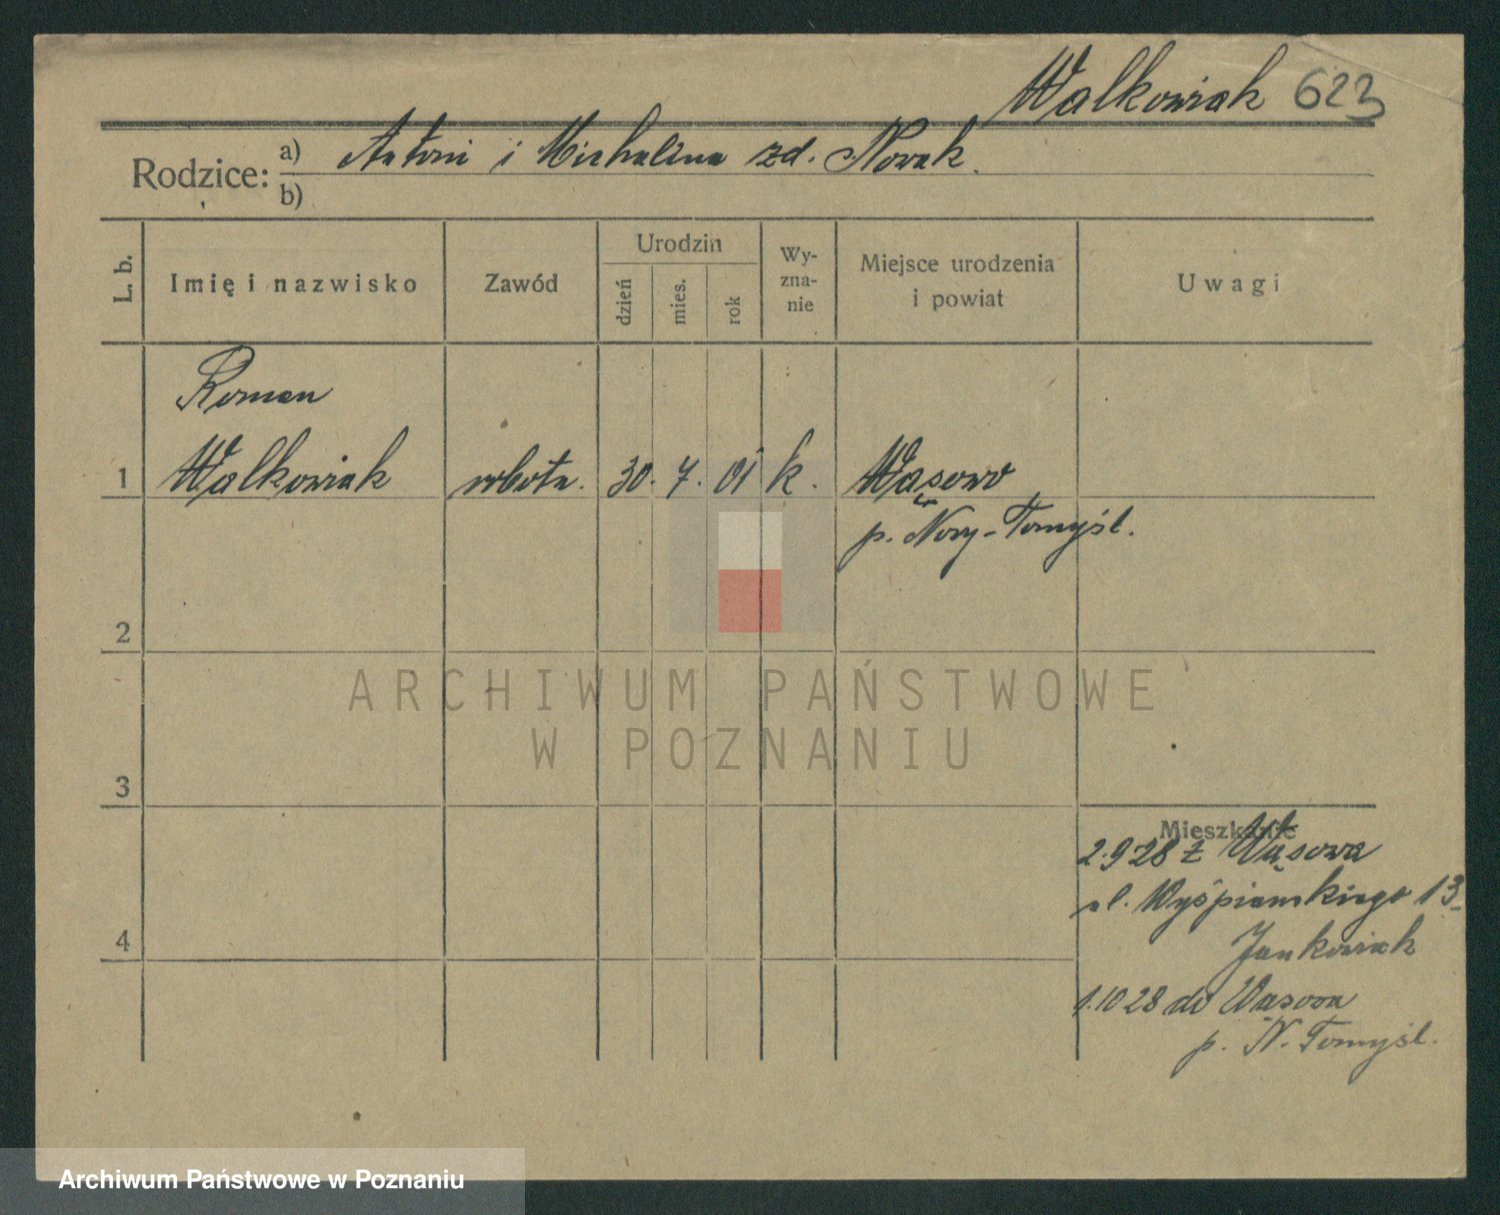 Walkowiak 623
Rodzice: a) Antoni i Michalina zd. Nowak.
b)
L. b. Imię i nazwisko Zawód Urodzin dzień mies. rok Wy-zna-nie Miejsce urodzenia i powiat Uwagi
Roman
1 Walkowiak robotn. 30. 7. 01 k. Wąsowo
p. Nowy-Tomyśl.
2
ARCHIWUM PAŃSTWOWE
W POZNANIU
3
Mieszkanie
2.9 28 z Wąsowa
ul. Wyśpiańskiego 13
Jankowiak
4
1.10 28 do Wąsowa
p. N. Tomyśl.
Archiwum Państwowe w Poznaniu